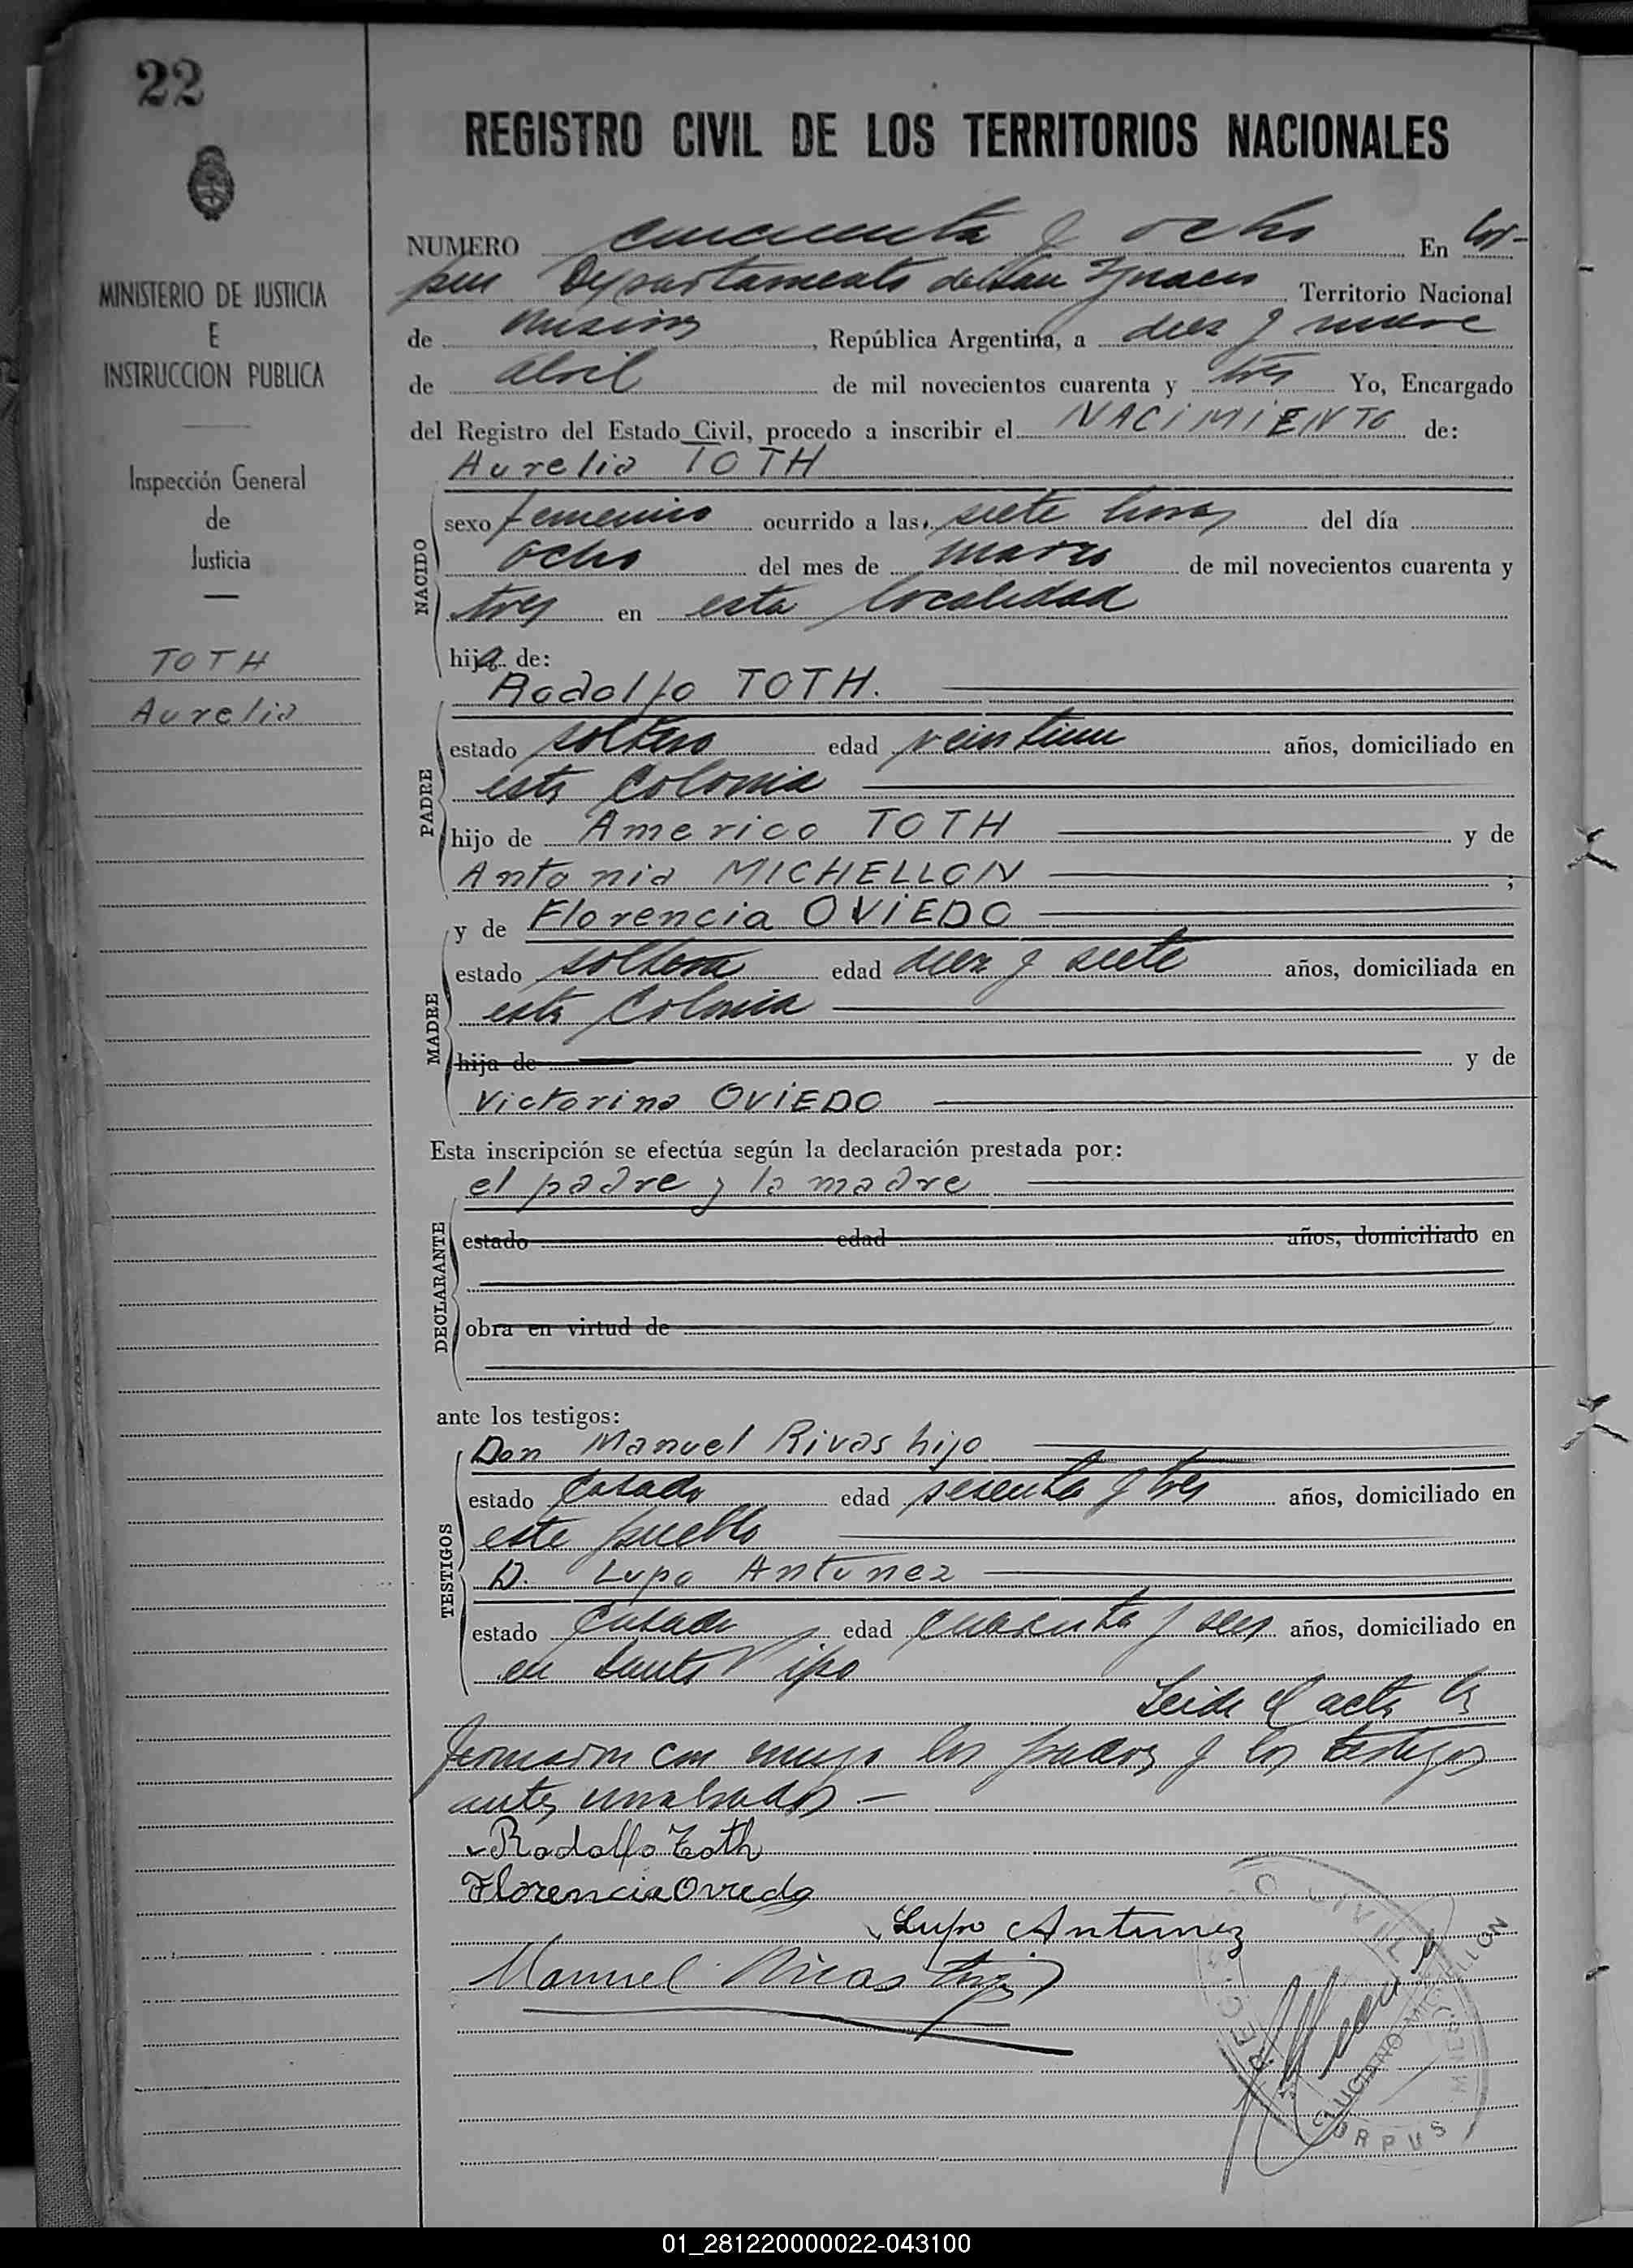 22
REGISTRO CIVIL DE LOS TERRITORIOS NACIONALES
MINISTERIO DE JUSTICIA
E
INSTRUCCION PUBLICA
Inspección General
de
Justicia
TOTH
Aurelia
NUMERO cincuenta y ocho En Cor-
pus Departamento de San Ignacio Territorio Nacional
de Misiones, República Argentina, a diez y nueve
de abril de mil novecientos cuarenta y tres Yo, Encargado
del Registro del Estado Civil, procedo a inscribir el NACIMIENTO de:
Aurelia TOTH
NACIDO
sexo femenino ocurrido a las siete horas del día
ocho del mes de marzo de mil novecientos cuarenta y
tres en esta localidad
hija de:
Rodolfo TOTH.
PADRE
estado soltero edad veintiun años, domiciliado en
esta Colonia
hijo de Americo TOTH y de
Antonia MICHELLON ;
y de Florencia OVIEDO
MADRE
estado soltera edad diez y siete años, domiciliada en
esta Colonia
hija de y de
Victorina OVIEDO
Esta inscripción se efectúa según la declaración prestada por:
el padre y la madre
DECLARANTE
estado edad años, domiciliado en
obra en virtud de
ante los testigos:
Don Manuel Rivas hijo
TESTIGOS
estado casado edad sesenta y tres años, domiciliado en
este pueblo
D. Lupo Antunez
estado casado edad cuarenta y seis años, domiciliado en
en Santo Pipo
Leida el acta la
firmaron con migo los padres y los testigos
antes nombrados –
Rodolfo Toth
Florencia Oviedo
Lupo Antunez
Manuel Rivas hijo
REG. CIVIL
LUCIANO MICHELLON
CORPUS
01_281220000022-043100